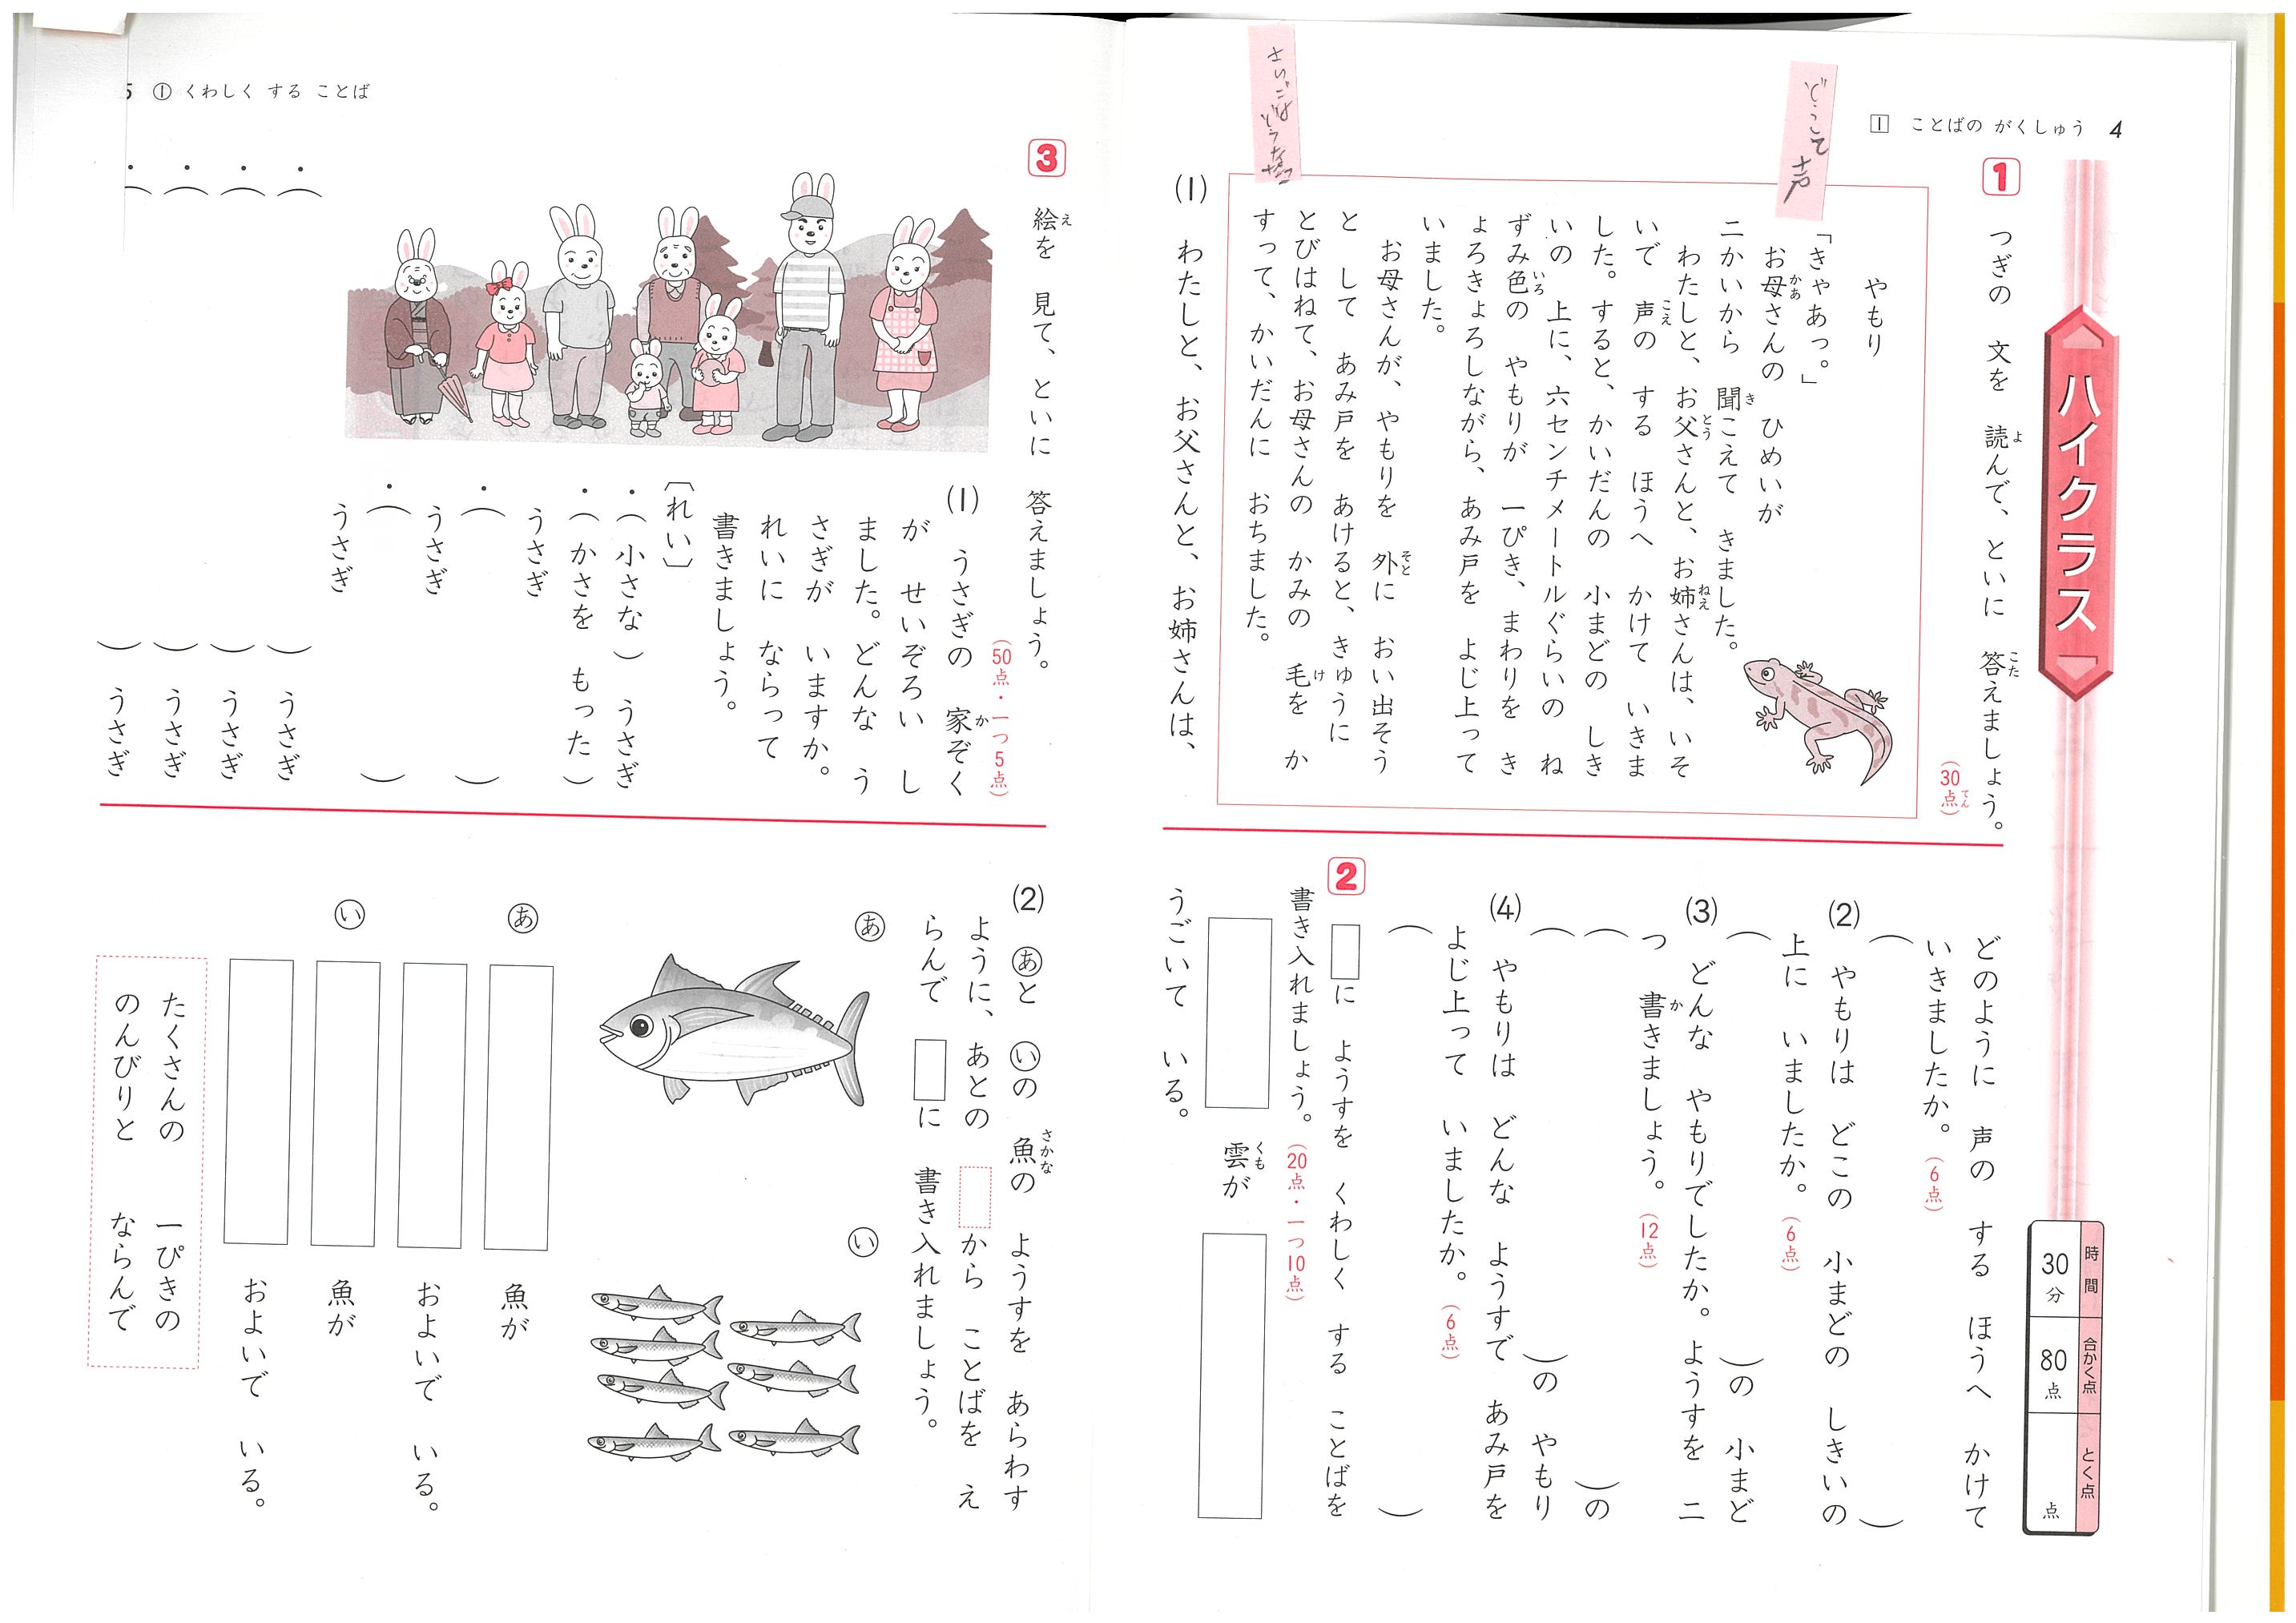 1 ことばの がくしゅう 4
ハイクラス
時間 30分
合かく点 80点
とく点 点
1 つぎの 文を 読んで、といに 答えましょう。
(30点)
どこで 声
やもり
「きゃあっ。」
お母さんの ひめいが
二かいから 聞こえて きました。
わたしと、お父さんと、お姉さんは、いそ
いで 声の する ほうへ かけて いきま
した。すると、かいだんの 小まどの しき
いの 上に、六センチメートルぐらいの ね
ずみ色の やもりが 一ぴき、まわりを き
ょろきょろしながら、あみ戸を よじ上って
いました。
お母さんが、やもりを 外に おい出そう
と して あみ戸を あけると、きゅうに
とびはねて、お母さんの かみの 毛を か
すって、かいだんに おちました。
(1) わたしと、お父さんと、お姉さんは、
どのように 声の する ほうへ かけて
いきましたか。(6点)
( )
(2) やもりは どこの 小まどの しきいの
上に いましたか。(6点)
( )の 小まど
(3) どんな やもりでしたか。ようすを 二
つ 書きましょう。(12点)
( )の
( )の やもり
(4) やもりは どんな ようすで あみ戸を
よじ上って いましたか。(6点)
( )
2 □に ようすを くわしく する ことばを
書き入れましょう。(20点・一つ10点)
□ 雲が □
うごいて いる。
5 ① くわしく する ことば
3 絵を 見て、といに 答えましょう。
(50点・一つ5点)
(1) うさぎの 家ぞく
が せいぞろい し
ました。どんな う
さぎが いますか。
れいに ならって
書きましょう。
〔れい〕
・(小さな) うさぎ
・(かさを もった)
うさぎ
・( )
うさぎ
・( )
うさぎ
・( ) うさぎ
・( ) うさぎ
・( ) うさぎ
・( ) うさぎ
(2) あと いの 魚の ようすを あらわす
ように、あとの □から ことばを え
らんで □に 書き入れましょう。
あ
い
あ □ 魚が
□ およいで いる。
い □ 魚が
□ およいで いる。
たくさんの 一ぴきの
のんびりと ならんで